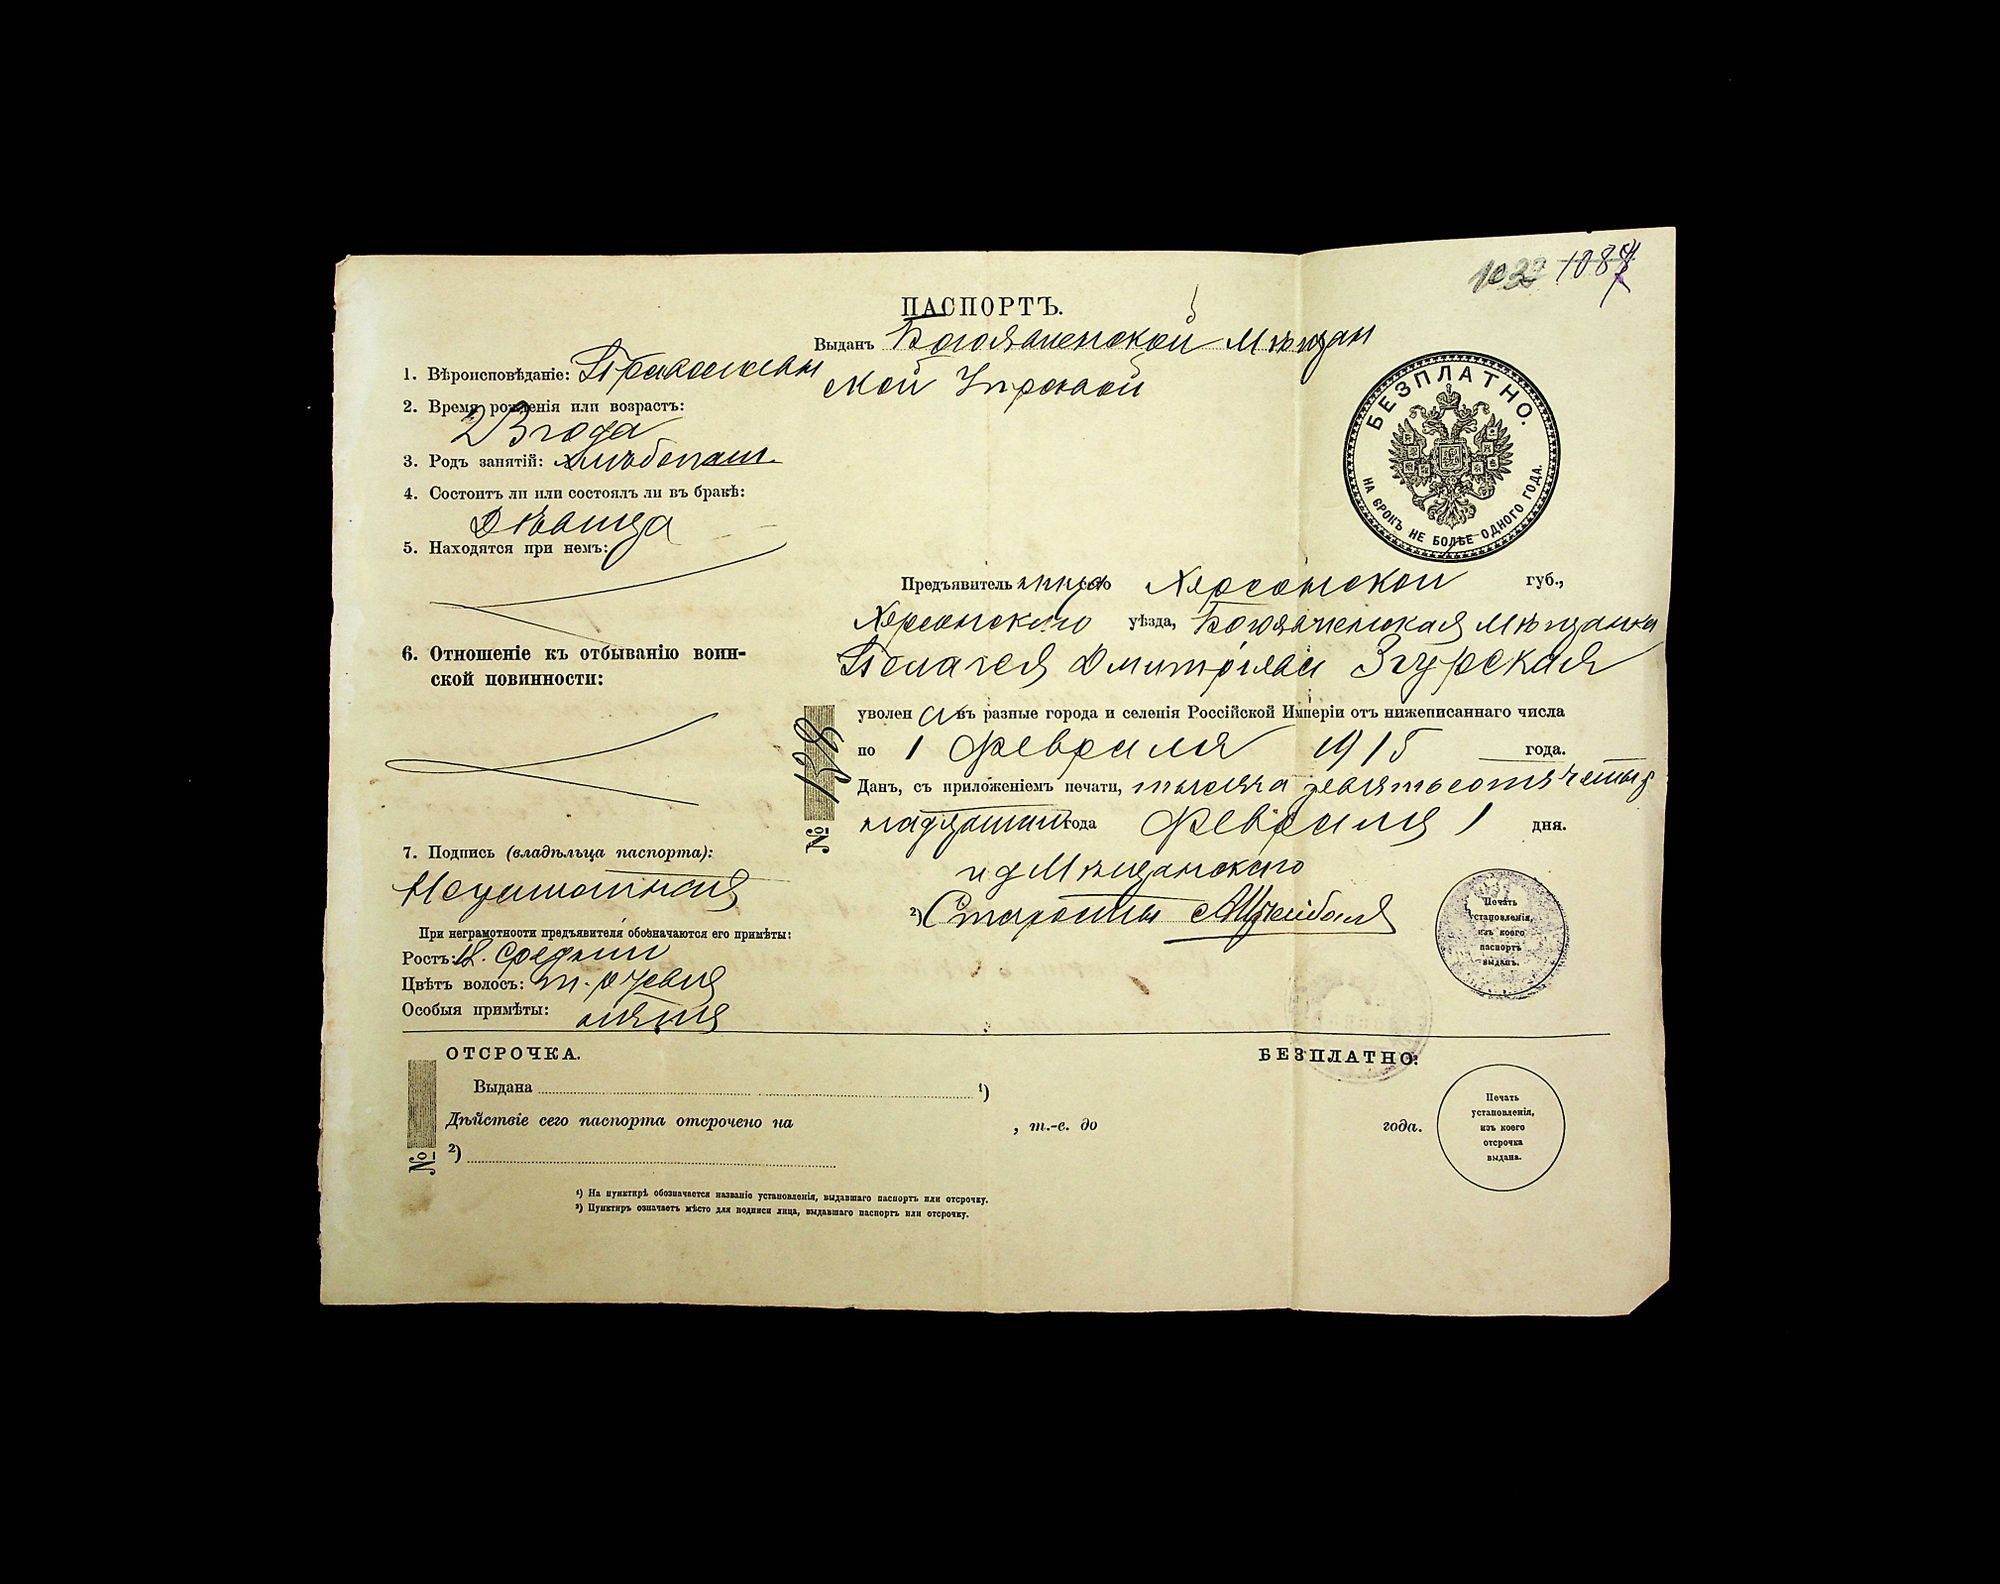 1087
ПАСПОРТЪ.
Выданъ Богоявленской Мѣщан
ской Управой
БЕЗПЛАТНО.
НА СРОКЪ НЕ БОЛѢЕ ОДНОГО ГОДА.
1. Вѣроисповѣданіе: Православн
2. Время рожденія или возрастъ:
23 года
3. Родъ занятій: хлѣбопаш.
4. Состоитъ ли или состоялъ ли въ бракѣ:
Дѣвица
5. Находятся при немъ:
6. Отношеніе къ отбыванію воин-
ской повинности:
7. Подпись (владѣльца паспорта):
Неграмотная
При неграмотности предъявителя обозначаются его примѣты:
Ростъ: средній
Цвѣтъ волосъ: т. русыя
Особыя примѣты:
Предъявитель сего Херсонской губ.,
Херсонскаго уѣзда, Богоявленская мѣщанка
Пелагея Дмитріева Згурская
уволен а въ разные города и селенія Россійской Имперіи отъ нижеписаннаго числа
по 1 Февраля 1915 года.
Данъ, съ приложеніемъ печати, тысяча девятьсотъ четыр
надцатаго года Февраля 1 дня.
№ 138
и д Мѣщанскаго
2) Старосты
Печать
установленія,
изъ коего
паспортъ
выданъ.
ОТСРОЧКА. БЕЗПЛАТНО.
№
Выдана 1)
Дѣйствіе сего паспорта отсрочено на , т.-е. до года.
2)
Печать
установленія,
изъ коего
отсрочка
выдана.
1) На пунктирѣ обозначается названіе установленія, выдавшаго паспортъ или отсрочку.
2) Пунктиръ означаетъ мѣсто для подписи лица, выдавшаго паспортъ или отсрочку.